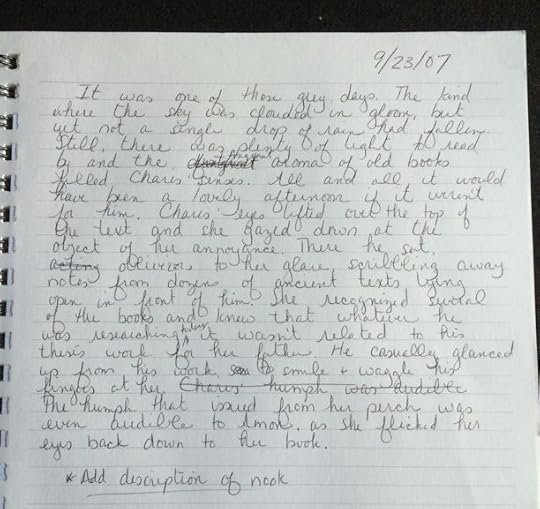 9/23/07
It was one of those grey days. The kind
where the sky was clouded in gloom, but
yet not a single drop of rain had fallen.
Still, there was plenty of light to read
by and the fragrant aroma of old books
filled Charis' senses. All and all it would
have been a lovely afternoon if it weren't
for him. Charis' eyes lifted over the top of
the text and she gazed down at the
object of her annoyance. There he sat,
acting oblivious to her glare, scribbling away
notes from dozens of ancient texts lying
open in front of him. She recognized several
of the books and knew that whatever he
was researching today it wasn't related to his
thesis work for her father. He casually glanced
up from his work, to smile + waggle his
fingers at her. Charis' humph was audible
The humph that issued from her perch was
even audible to Amon, as she flicked her
eyes back down to her book.
* Add description of nook